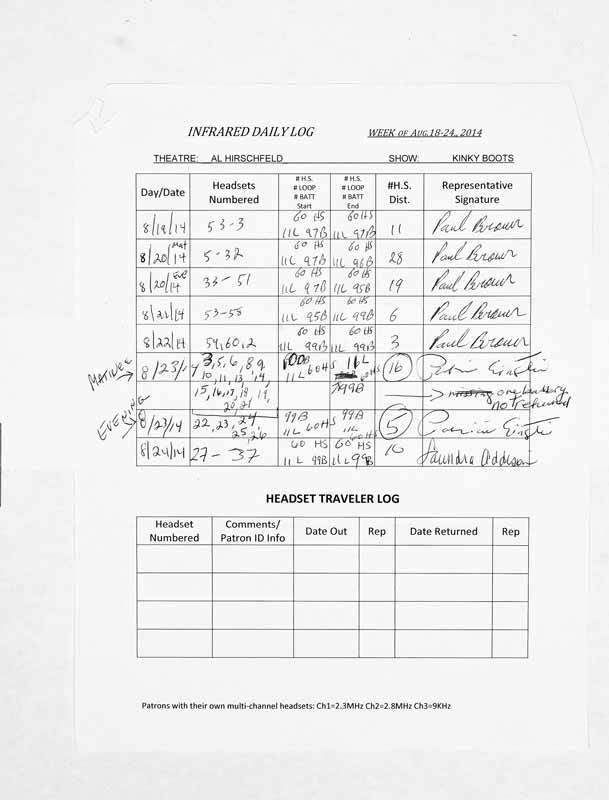 INFRARED DAILY LOG WEEK OF AUG.18-24, 2014
THEATRE: AL HIRSCHFELD SHOW: KINKY BOOTS
Day/Date Headsets Numbered # H.S. # LOOP # BATT Start # H.S. # LOOP # BATT End #H.S. Dist. Representative Signature
8/19/14 53-3 60 HS 11L 97B 60 HS 11L 97B 11 Paul Brower
8/20/14 Mat 5-32 60 HS 11L 97B 60 HS 11L 96B 28 Paul Brower
8/20/14 Eve 33-51 60 HS 11L 97B 60 HS 11L 95B 19 Paul Brower
8/21/14 53-58 60 HS 11L 95B 60 HS 11L 99B 6 Paul Brower
8/22/14 59,60,2 60 HS 11L 99B 60 HS 11L 99B 3 Paul Brower
MATINEE 8/23/14 3,5,6,8,9 100B 11L 60HS 11L 60HS 16
10,11,13,14,
15,16,17,18,19, 99B one battery
20,21 not returned
EVENING 8/23/14 22,23,24, 99B 11L 60HS 99B 11L 60HS 5
25,26
8/24/14 27-37 60 HS 11L 99B 60 HS 11L 99B 10 Saundra Addison
HEADSET TRAVELER LOG
Headset Numbered Comments/ Patron ID Info Date Out Rep Date Returned Rep
Patrons with their own multi-channel headsets: Ch1=2.3MHz Ch2=2.8MHz Ch3=9KHz